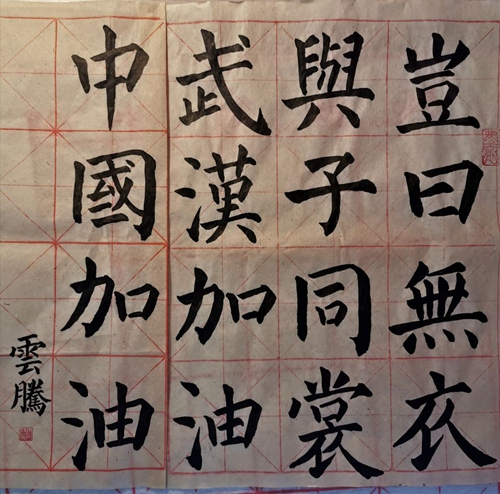 豈曰無衣
與子同裳
武漢加油
中國加油
雲騰